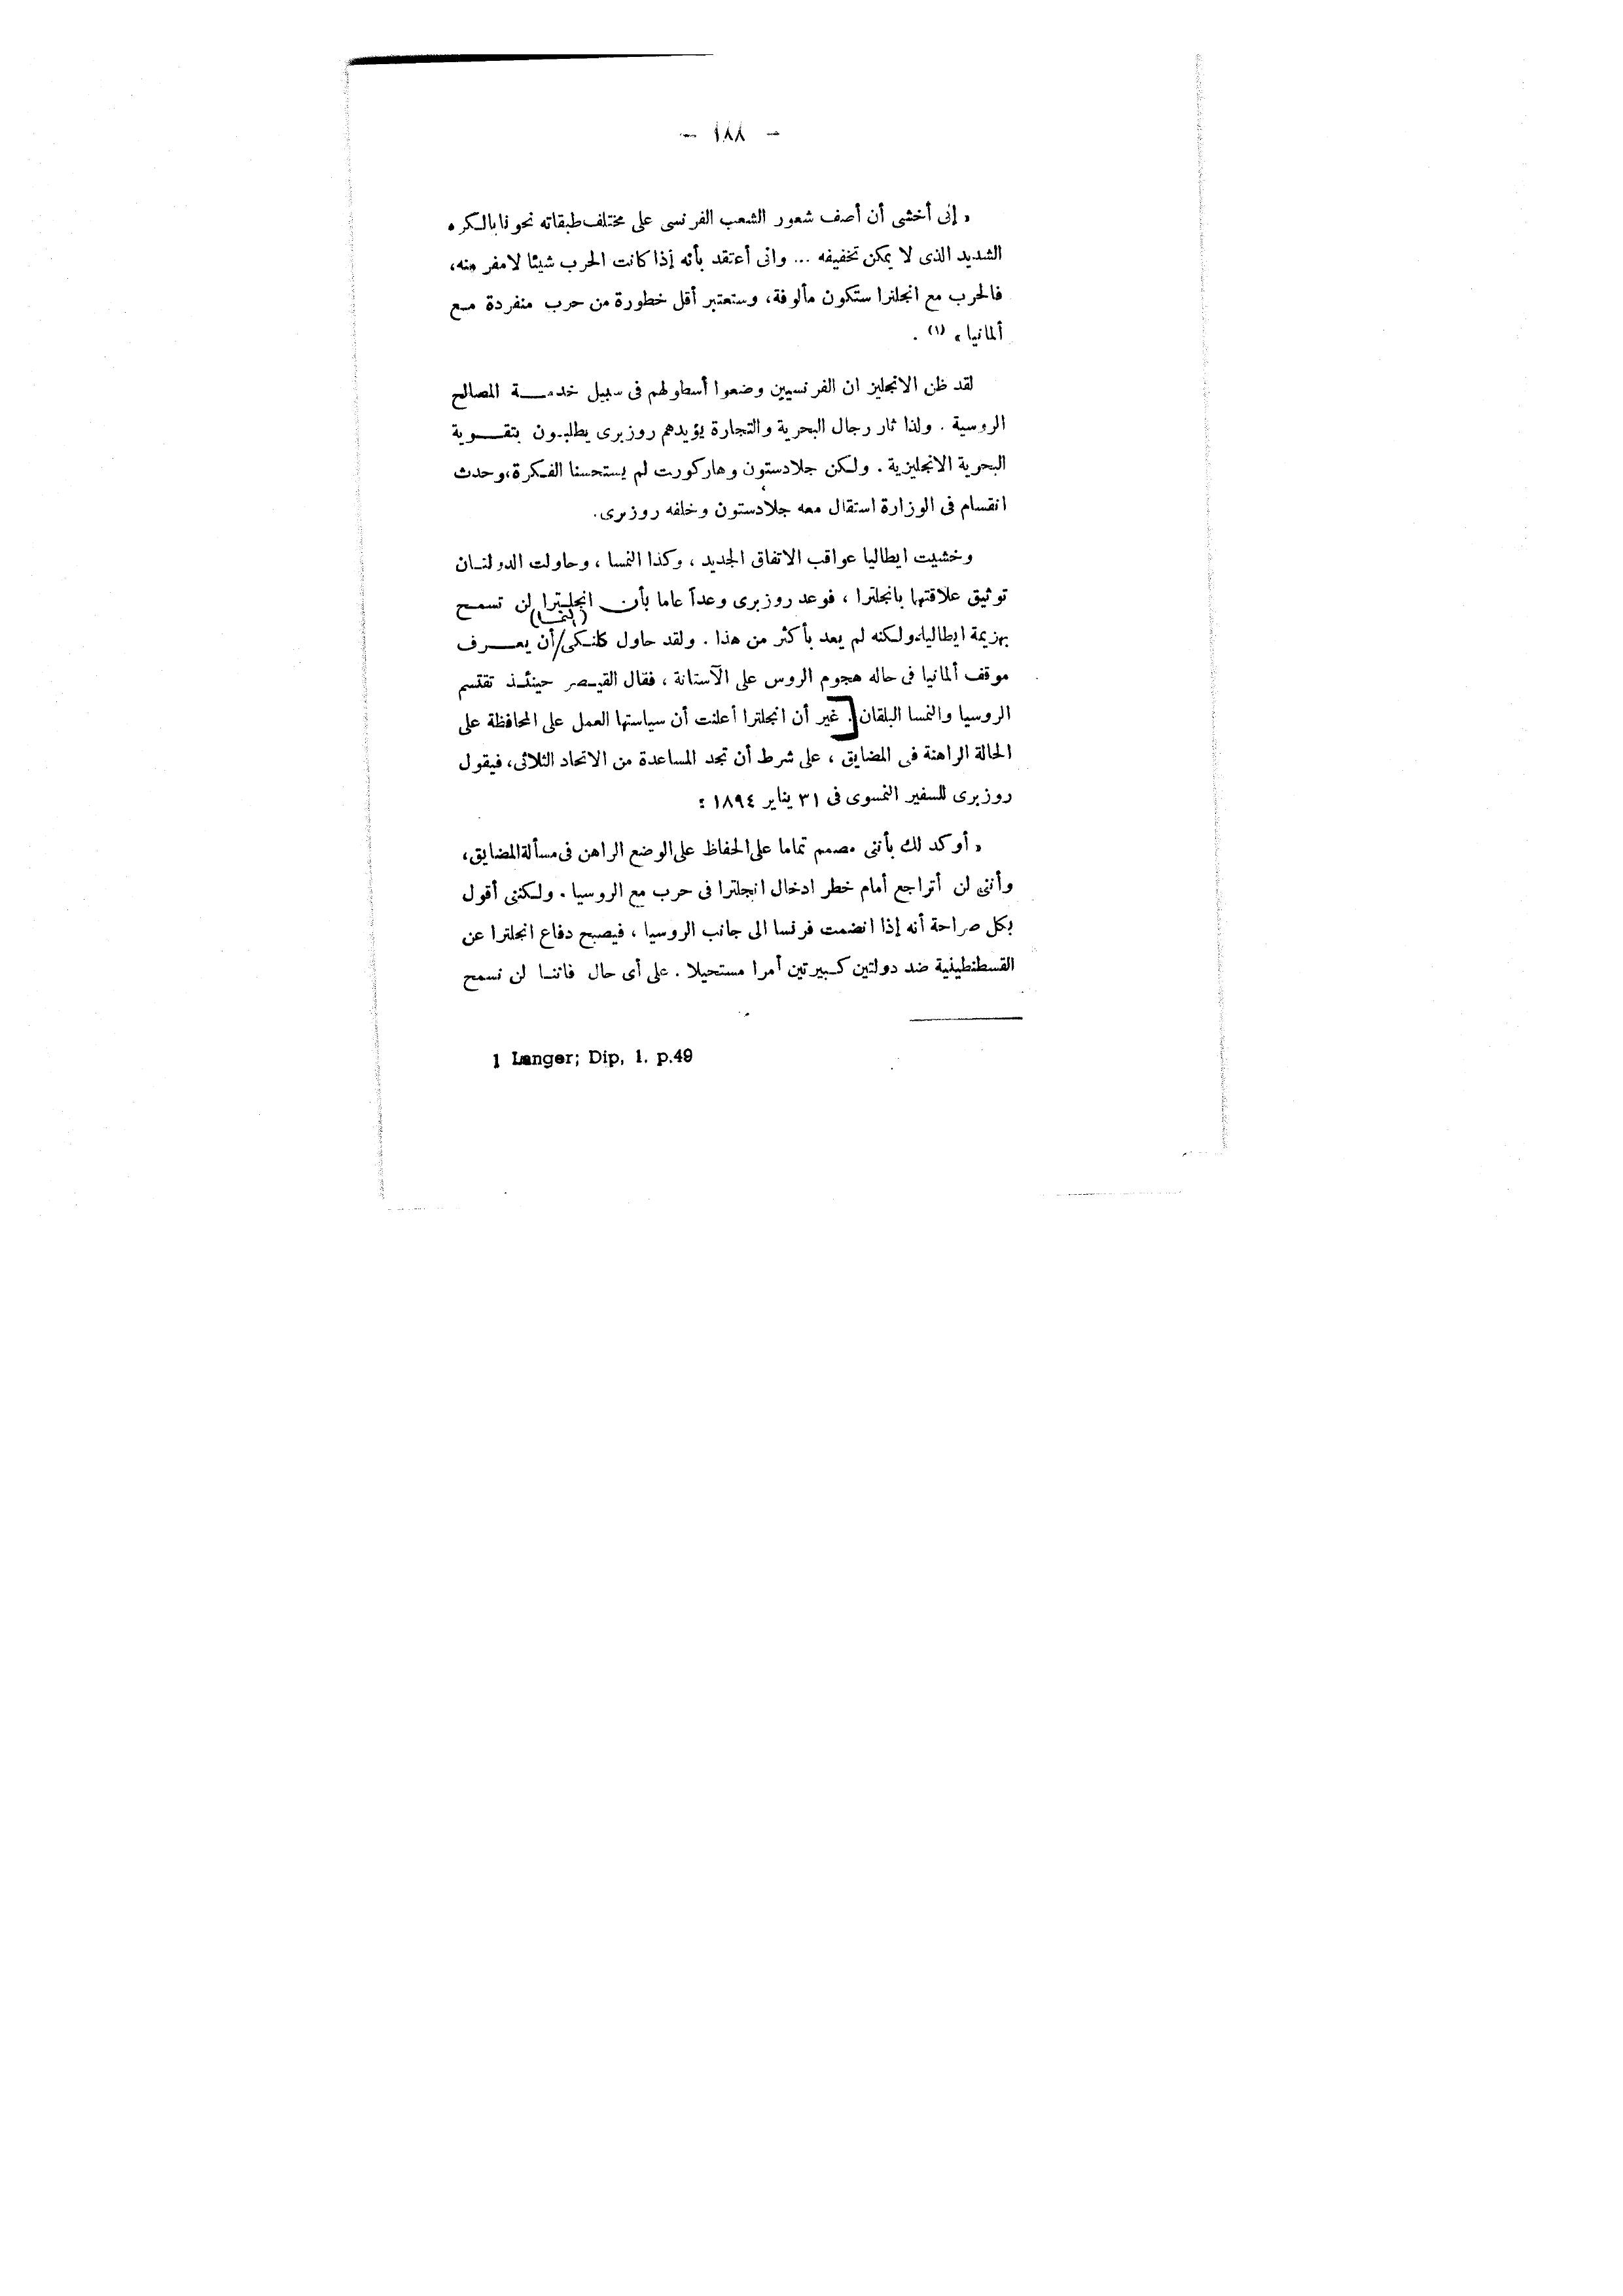 - ١٨٨ -
« إنى أخشى أن أصف شعور الشعب الفرنسى على مختلف طبقاته نحونا بالكره
الشديد الذى لا يمكن تخفيفه ... وانى أعتقد بأنه إذا كانت الحرب شيئا لامفر منه،
فالحرب مع انجلترا ستكون مألوفة، وستعتبر أقل خطورة من حرب منفردة مع
ألمانيا » (١) .
لقد ظن الانجليز ان الفرنسيين وضعوا أسطولهم فى سبيل خدمة المصالح
الروسية . ولذا ثار رجال البحرية والتجارة يؤيدهم روزبرى يطلبون بتقوية
البحرية الانجليزية . ولكن جلادستون وهاركورت لم يستحسنا الفكرة، وحدث
انقسام فى الوزارة استقال معه جلادستون وخلفه روزبرى.
وخشيت ايطاليا عواقب الاتفاق الجديد ، وكذا النمسا ، وحاولت الدولتان
توثيق علاقتها بانجلترا ، فوعد روزبرى وعداً عاما بأن انجلترا لن تسمح
(النمسا)
بهزيمة ايطاليا، ولكنه لم يعد بأكثر من هذا . ولقد حاول كلنكى/أن يعرف
موقف ألمانيا فى حاله هجوم الروس على الآستانة ، فقال القيصر حينئذ تقتسم
الروسيا والنمسا البلقان [. غير أن انجلترا أعلنت أن سياستها العمل على المحافظة على
الحالة الراهنة فى المضايق ، على شرط أن تجد المساعدة من الاتحاد الثلاثى، فيقول
روزبرى للسفير النمسوى فى ٣١ يناير ١٨٩٤ :
« أوكد لك بأننى مصمم تماما على الحفاظ على الوضع الراهن فى مسألة المضايق،
وأننى لن أتراجع أمام خطر ادخال انجلترا فى حرب مع الروسيا . ولكننى أقول
بكل صراحة أنه إذا انضمت فرنسا الى جانب الروسيا ، فيصبح دفاع انجلترا عن
القسطنطينية ضد دولتين كبيرتين أمرا مستحيلا . على أى حال فاننا لن نسمح
1 Langer; Dip, 1. p.49